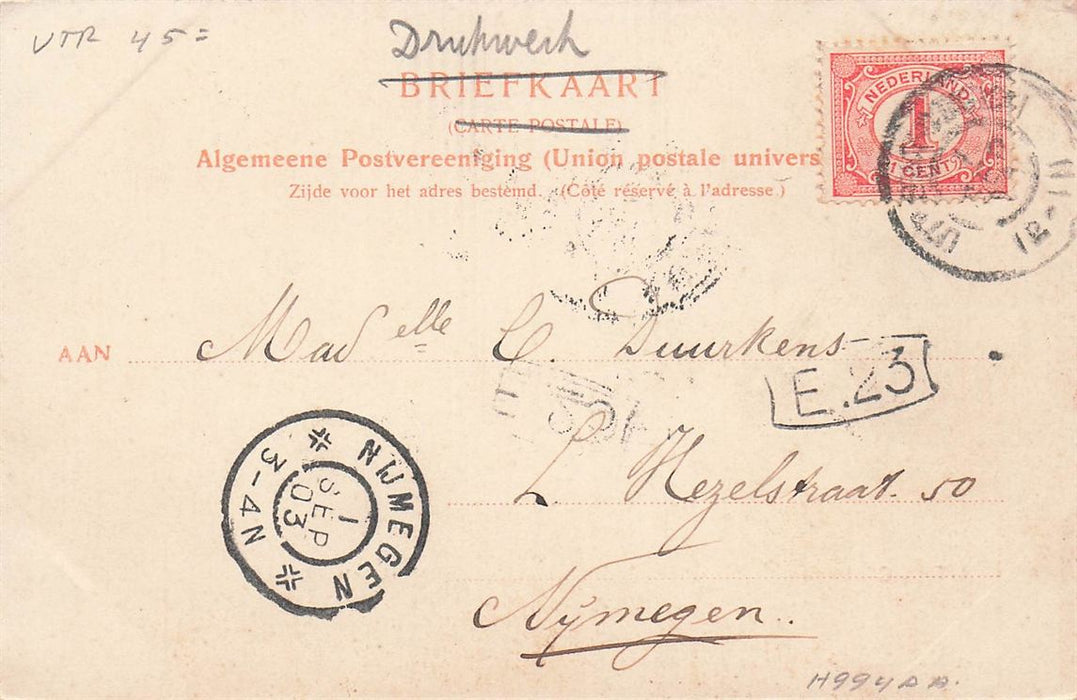 VTR 45=
Drukwerk
BRIEFKAART
(CARTE POSTALE)
Algemeene Postvereeniging (Union postale univers
Zijde voor het adres bestemd. (Côté réservé à l'adresse.)
NEDERLAND
1
1 CENT 1
UTR
12-1N
AAN Madelle C. Duurkens
E.23
L Hezelstraat 50
Nymegen..
NIJMEGEN
1
SEP
03
3-4N
H994